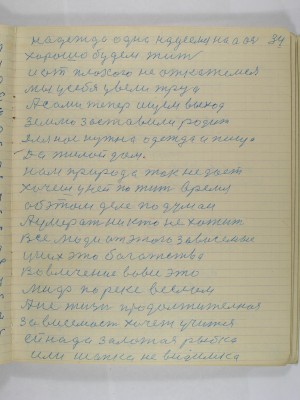 надежда одна надеемъ на а ӑз 84
хорошо будем жит
и от плохого не откажемся
мы у себя увели труд
А сами тепер ищем выход
землю заставили родит
Для нас нужна одежда и пища
Да жилой дом.
нам природа так не дает
хочем уней пожит время
об этом две подуман
А умерат никто не хотят
Все люди от этого зависемы
у них это богатства
Вовлечение вови это
надо по реке веслом
А не тизи продолжителная
зависемост хочет учится
ей надо золотая рыбка
или шапка невидимка